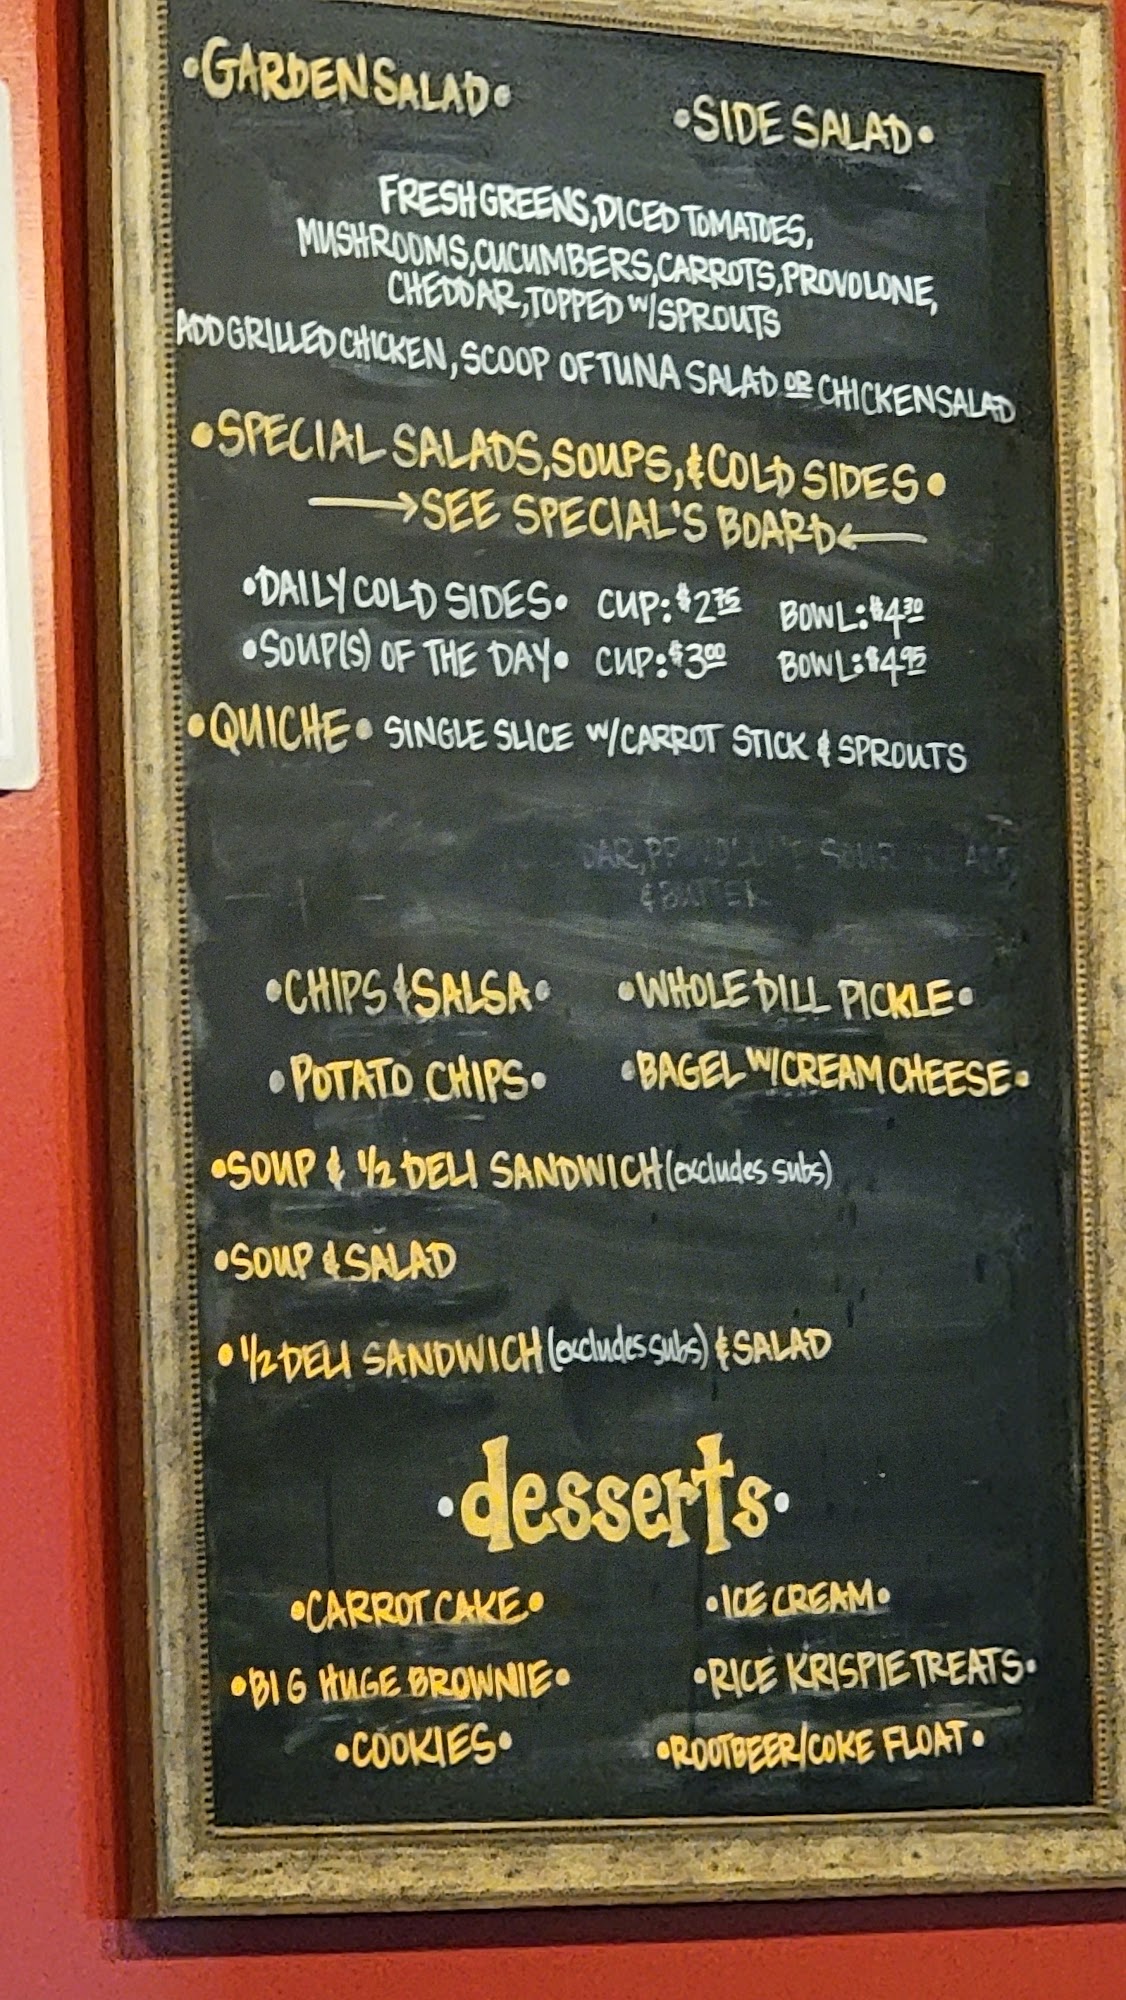 •GARDEN SALAD•
•SIDE SALAD•
FRESH GREENS, DICED TOMATOES,
MUSHROOMS, CUCUMBERS, CARROTS, PROVOLONE,
CHEDDAR, TOPPED W/SPROUTS
ADD GRILLED CHICKEN, SCOOP OF TUNA SALAD OR CHICKEN SALAD
•SPECIAL SALADS, SOUPS, & COLD SIDES•
→SEE SPECIAL'S BOARD←
•DAILY COLD SIDES• CUP: $2.75 BOWL: $4.30
•SOUP(S) OF THE DAY• CUP: $3.00 BOWL: $4.95
•QUICHE• SINGLE SLICE W/CARROT STICK & SPROUTS
& BUTTER
•CHIPS & SALSA• •WHOLE DILL PICKLE•
•POTATO CHIPS• •BAGEL W/CREAM CHEESE•
•SOUP & 1/2 DELI SANDWICH (excludes subs)
•SOUP & SALAD
•1/2 DELI SANDWICH (excludes subs) & SALAD
•desserts•
•CARROT CAKE• •ICE CREAM•
•BIG HUGE BROWNIE• •RICE KRISPIE TREATS•
•COOKIES• •ROOTBEER/COKE FLOAT•